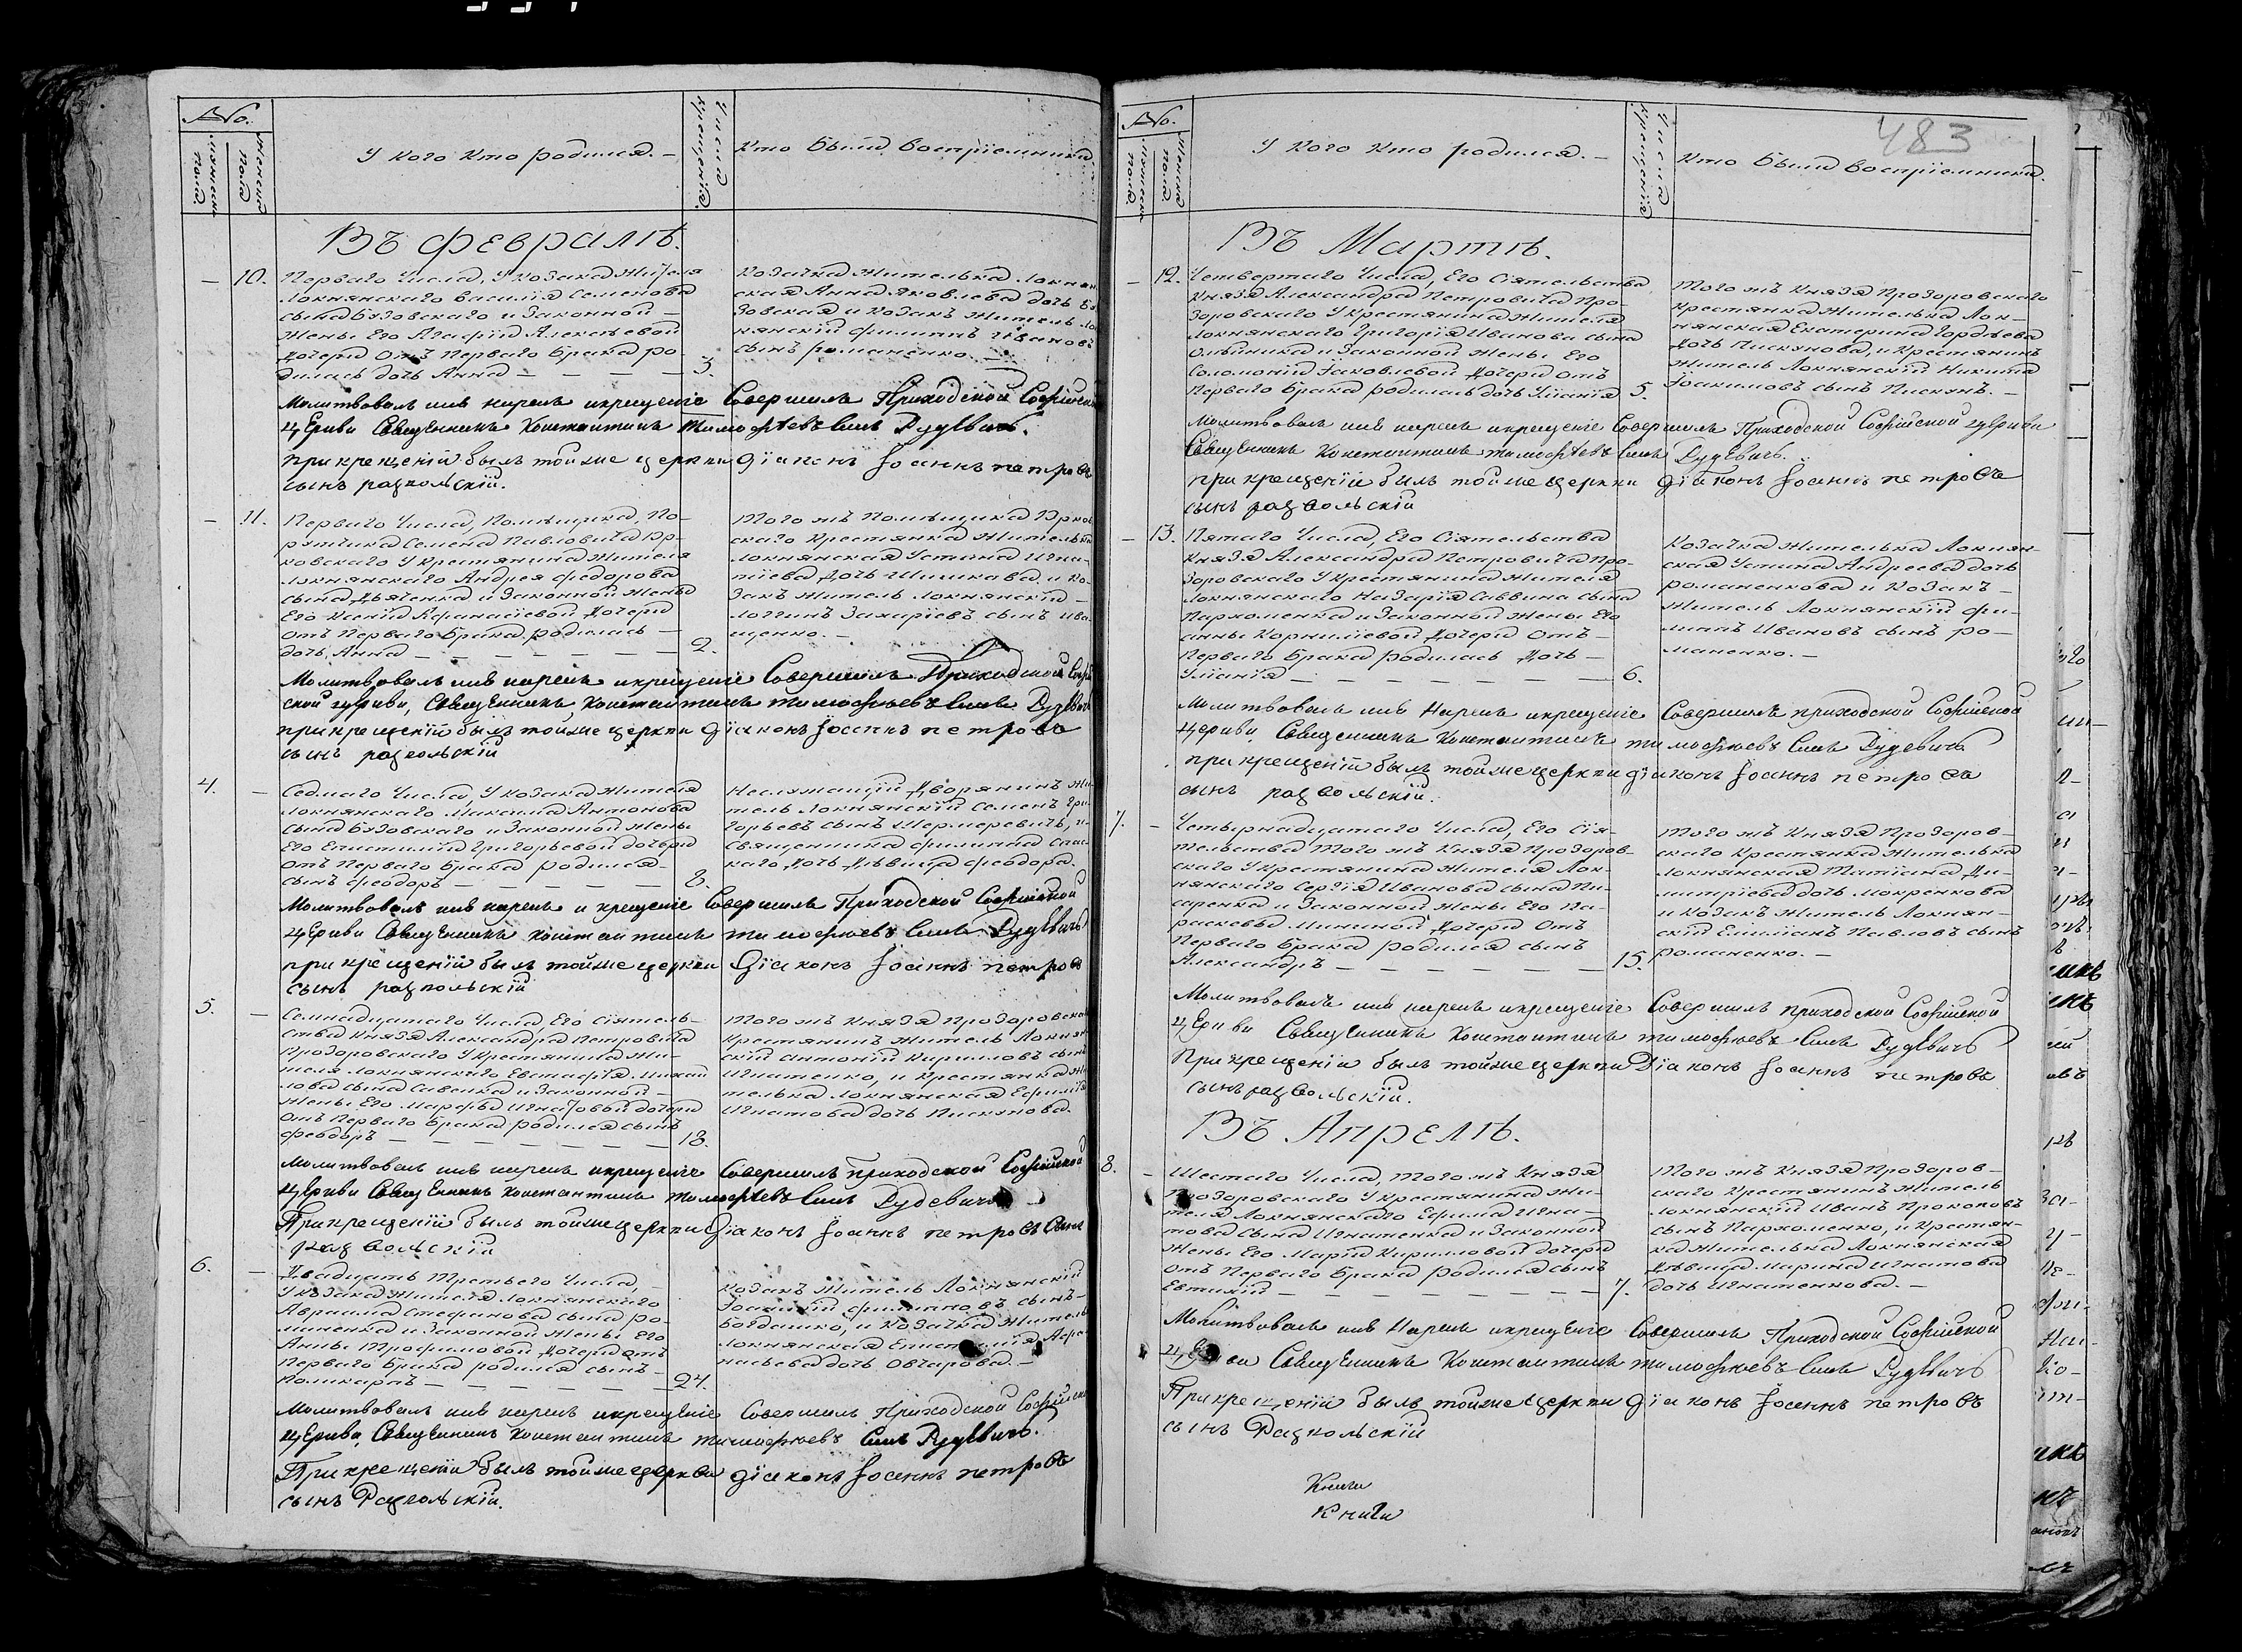 No.
мужеска пола
женска пола
У кого кто родился. –
Число крещенія
Кто былъ воспріемникъ.
Въ Февралѣ.
– 10. Перваго Числа, У козака Жителя
локнянскаго василія Семенова
сына Бузовскаго и Законной –
Жены Его Агафіи Алексѣевой
дочери Отъ Перваго Брака ро-
дилась дочь Анна – – – – 3.
Козачка Жителька Локнян
ская Анна Яковлева дочь Бу
зовская и Козакъ Житель Ло
княнскій Филиппъ Ивановъ
сынъ романенко. –
Молитвовалъ имя нарекъ и крещеніе Совершилъ Приходской Софійской
Церкви Священникъ Константинъ тимофѣевъ Сынъ Дудевичъ.
при крещеніи былъ тойже церкви діаконъ Іоаннъ петровъ
сынъ радвольскій.
– 11. Перваго Числа, Помѣщика, По-
ручика Семена Павловича Ор-
ковскаго У крестянина Жителя
локнянскаго Андрея Федорова
сына Дьяченка и Законной Жены
Его Ксеніи Афанасіевой дочери
отъ Перваго Брака родилась –
дочь Анна – – – – – – 2.
Того жъ Помѣщика Орков
скаго Крестянка Жителька
локнянская Устина Игна-
тіева дочь Шишкова и Ко-
закъ Житель локнянскій –
логгинъ Захаріевъ сынъ Ива
щенко. –
Молитвовалъ имя нарекъ и крещеніе Совершилъ Приходской Софій
ской церкви, Священникъ Константинъ тимофѣевъ Сынъ Дудевичъ
при крещеніи былъ тойже церкви діаконъ Іоаннъ петровъ
сынъ радвольскій
4. – Седмаго Числа, У козака Жителя
локнянскаго Максима Антонова
сына Бузовскаго и Законной Жены
Его Епистиміи Григорьевой дочери
Отъ Перваго Брака родился
сынъ Феодоръ – – – – – 8.
Неслужащій дворянинъ Жи
тель Локнянскій Семенъ Гри
горьевъ сынъ Шермеревичъ, и
Священника Филиппа Спас
каго дочь дѣвица Феодора.
Молитвовалъ имя нарекъ и крещеніе Совершилъ Приходской Софійской
Церкви Священникъ Константинъ тимофѣевъ Сынъ Дудевичъ
при крещеніи былъ тойже церкви діаконъ Іоаннъ петровъ
сынъ радвольскій
5. – Семнадцатаго Числа, Его Сіятель-
ства Князя Александра Петровича
Прозоровскаго У крестянина Жи-
теля локнянскаго Евстафія Михай
лова сына Савенка и Законной –
Жены Его Марфы Игнатовой дочери
Отъ Перваго Брака родился сынъ
Феодоръ – – – – – – 18.
Того жъ Князя Прозоровскаго
крестянинъ Житель Локнян
скій Антоній Кириловъ сынъ
Игнатенко, и Крестянка Жи
телька Локнянская Ефимія
Игнатова дочь Пискунова.
Молитвовалъ имя нарекъ и крещеніе Совершилъ приходской Софійской
Церкви Священникъ Константинъ тимофѣевъ Сынъ Дудевичъ
При крещеніи былъ тойже церкви діаконъ Іоаннъ петровъ Сынъ
радвольскій
6. – Двадцать Третьего Числа,
У козака Жителя Локнянскаго
Авраама Стефанова сына Ро-
маненка и Законной Жены Его
Анны Трофимовой дочери отъ
Перваго Брака родился сынъ
Поликарпъ – – – – – 24.
Козакъ Житель Локнянскій
Іоакимъ Филипповъ сынъ
Богдашко, и Козачка Житель
локнянская Афа
насьева дочь Овчарова. –
Молитвовалъ имя нарекъ и крещеніе Совершилъ Приходской Софійской
Церкви, Священникъ Константинъ тимофѣевъ Сынъ Дудевичъ.
При крещеніи былъ тойже церкви діаконъ Іоаннъ петровъ
сынъ Радвольскій.
483
No.
мужеска пола
женска пола
У кого кто родился. –
Число крещенія
Кто былъ воспріемникъ.
Въ Мартѣ.
– 12. Четвертаго Числа, Его Сіятельства
Князя Александра Петровича Про-
зоровскаго У крестянина Жителя
локнянскаго Григорія Иванова сына
Олейника и Законной Жены Его
Соломоніи Іаковлевой дочери Отъ
Перваго Брака родилась дочь Уліанія 5.
Того жъ Князя Прозоровскаго
крестянка Жителька Лок-
нянская Екатерина Гордѣева
дочь Пискунова, и Крестянинъ
Житель Локнянскій Никита
Іоакимовъ сынъ Пискунъ. –
Молитвовалъ имя нарекъ и крещеніе Совершилъ Приходской Софійской церкви
Священникъ Константинъ тимофѣевъ Сынъ Дудевичъ.
при крещеніи былъ тойже церкви діаконъ Іоаннъ петровъ
сынъ радвольскій
– 13. Пятаго Числа, Его Сіятельства
Князя Александра Петровича Про-
зоровскаго У крестянина Жителя
локнянскаго Назарія Саввина сына
Пархоменка и Законной Жены Его
анны Корниліевой дочери Отъ –
Перваго Брака родилась дочь –
Уліанія – – – – – – 6.
Козачка Жителька Локнян-
ская Устина Андреева дочь
романенкова и Козакъ –
Житель Локнянскій Фи-
липпъ Ивановъ сынъ ро-
маненко. –
Молитвовалъ имя Нарекъ и крещеніе Совершилъ приходской Софійской
Церкви, Священникъ Константинъ тимофѣевъ Сынъ Дудевичъ
при крещеніи былъ тойже церкви діаконъ Іоаннъ петровъ
сынъ радвольскій.
7. – Четырнадцатаго Числа, Его Сія-
тельства того жъ Князя Прозоров-
скаго У крестянина Жителя Лок-
нянскаго Сергія Иванова сына Пи-
саренка и Законной Жены Его Па-
раскевы Мининой дочери Отъ
Перваго Брака родился сынъ
Александръ – – – – – – 15.
Того жъ Князя Прозоров-
скаго Крестянка Жителька
локнянская Татіана Ди-
митріева дочь Мокренкова
и Козакъ Житель Локнян-
скій Емиліанъ Павловъ сынъ
романенко. –
Молитвовалъ имя нарекъ и крещеніе Совершилъ приходской Софійской
Церкви Священникъ Константинъ тимофѣевъ Сынъ Дудевичъ
При крещеніи былъ тойже церкви Діаконъ Іоаннъ петровъ
сынъ радвольскій.
Въ Апрелѣ.
8. – Шестаго Числа, того жъ Князя
Прозоровскаго У крестянина Жи-
теля Локнянскаго Ефима Игна-
това сына Игнатенка и Законной
Жены Его Маріи Кириловой дочери
Отъ Перваго Брака родился сынъ
Евтихій – – – – – – 7.
Того жъ Князя Прозоров-
скаго Крестянинъ Житель
локнянскій Иванъ Прокоповъ
сынъ Пархоменко, и Крестян-
ка Жителька Локнянская
дѣвица Марина Игнатова
дочь Игнатенкова. –
Молитвовалъ имя Нарекъ и крещеніе Совершилъ Приходской Софійской
Церкви Священникъ Константинъ тимофѣевъ Сынъ Дудевичъ
При крещеніи былъ тойже церкви діаконъ Іоаннъ петровъ
сынъ Радвольскій
Книги
Книги